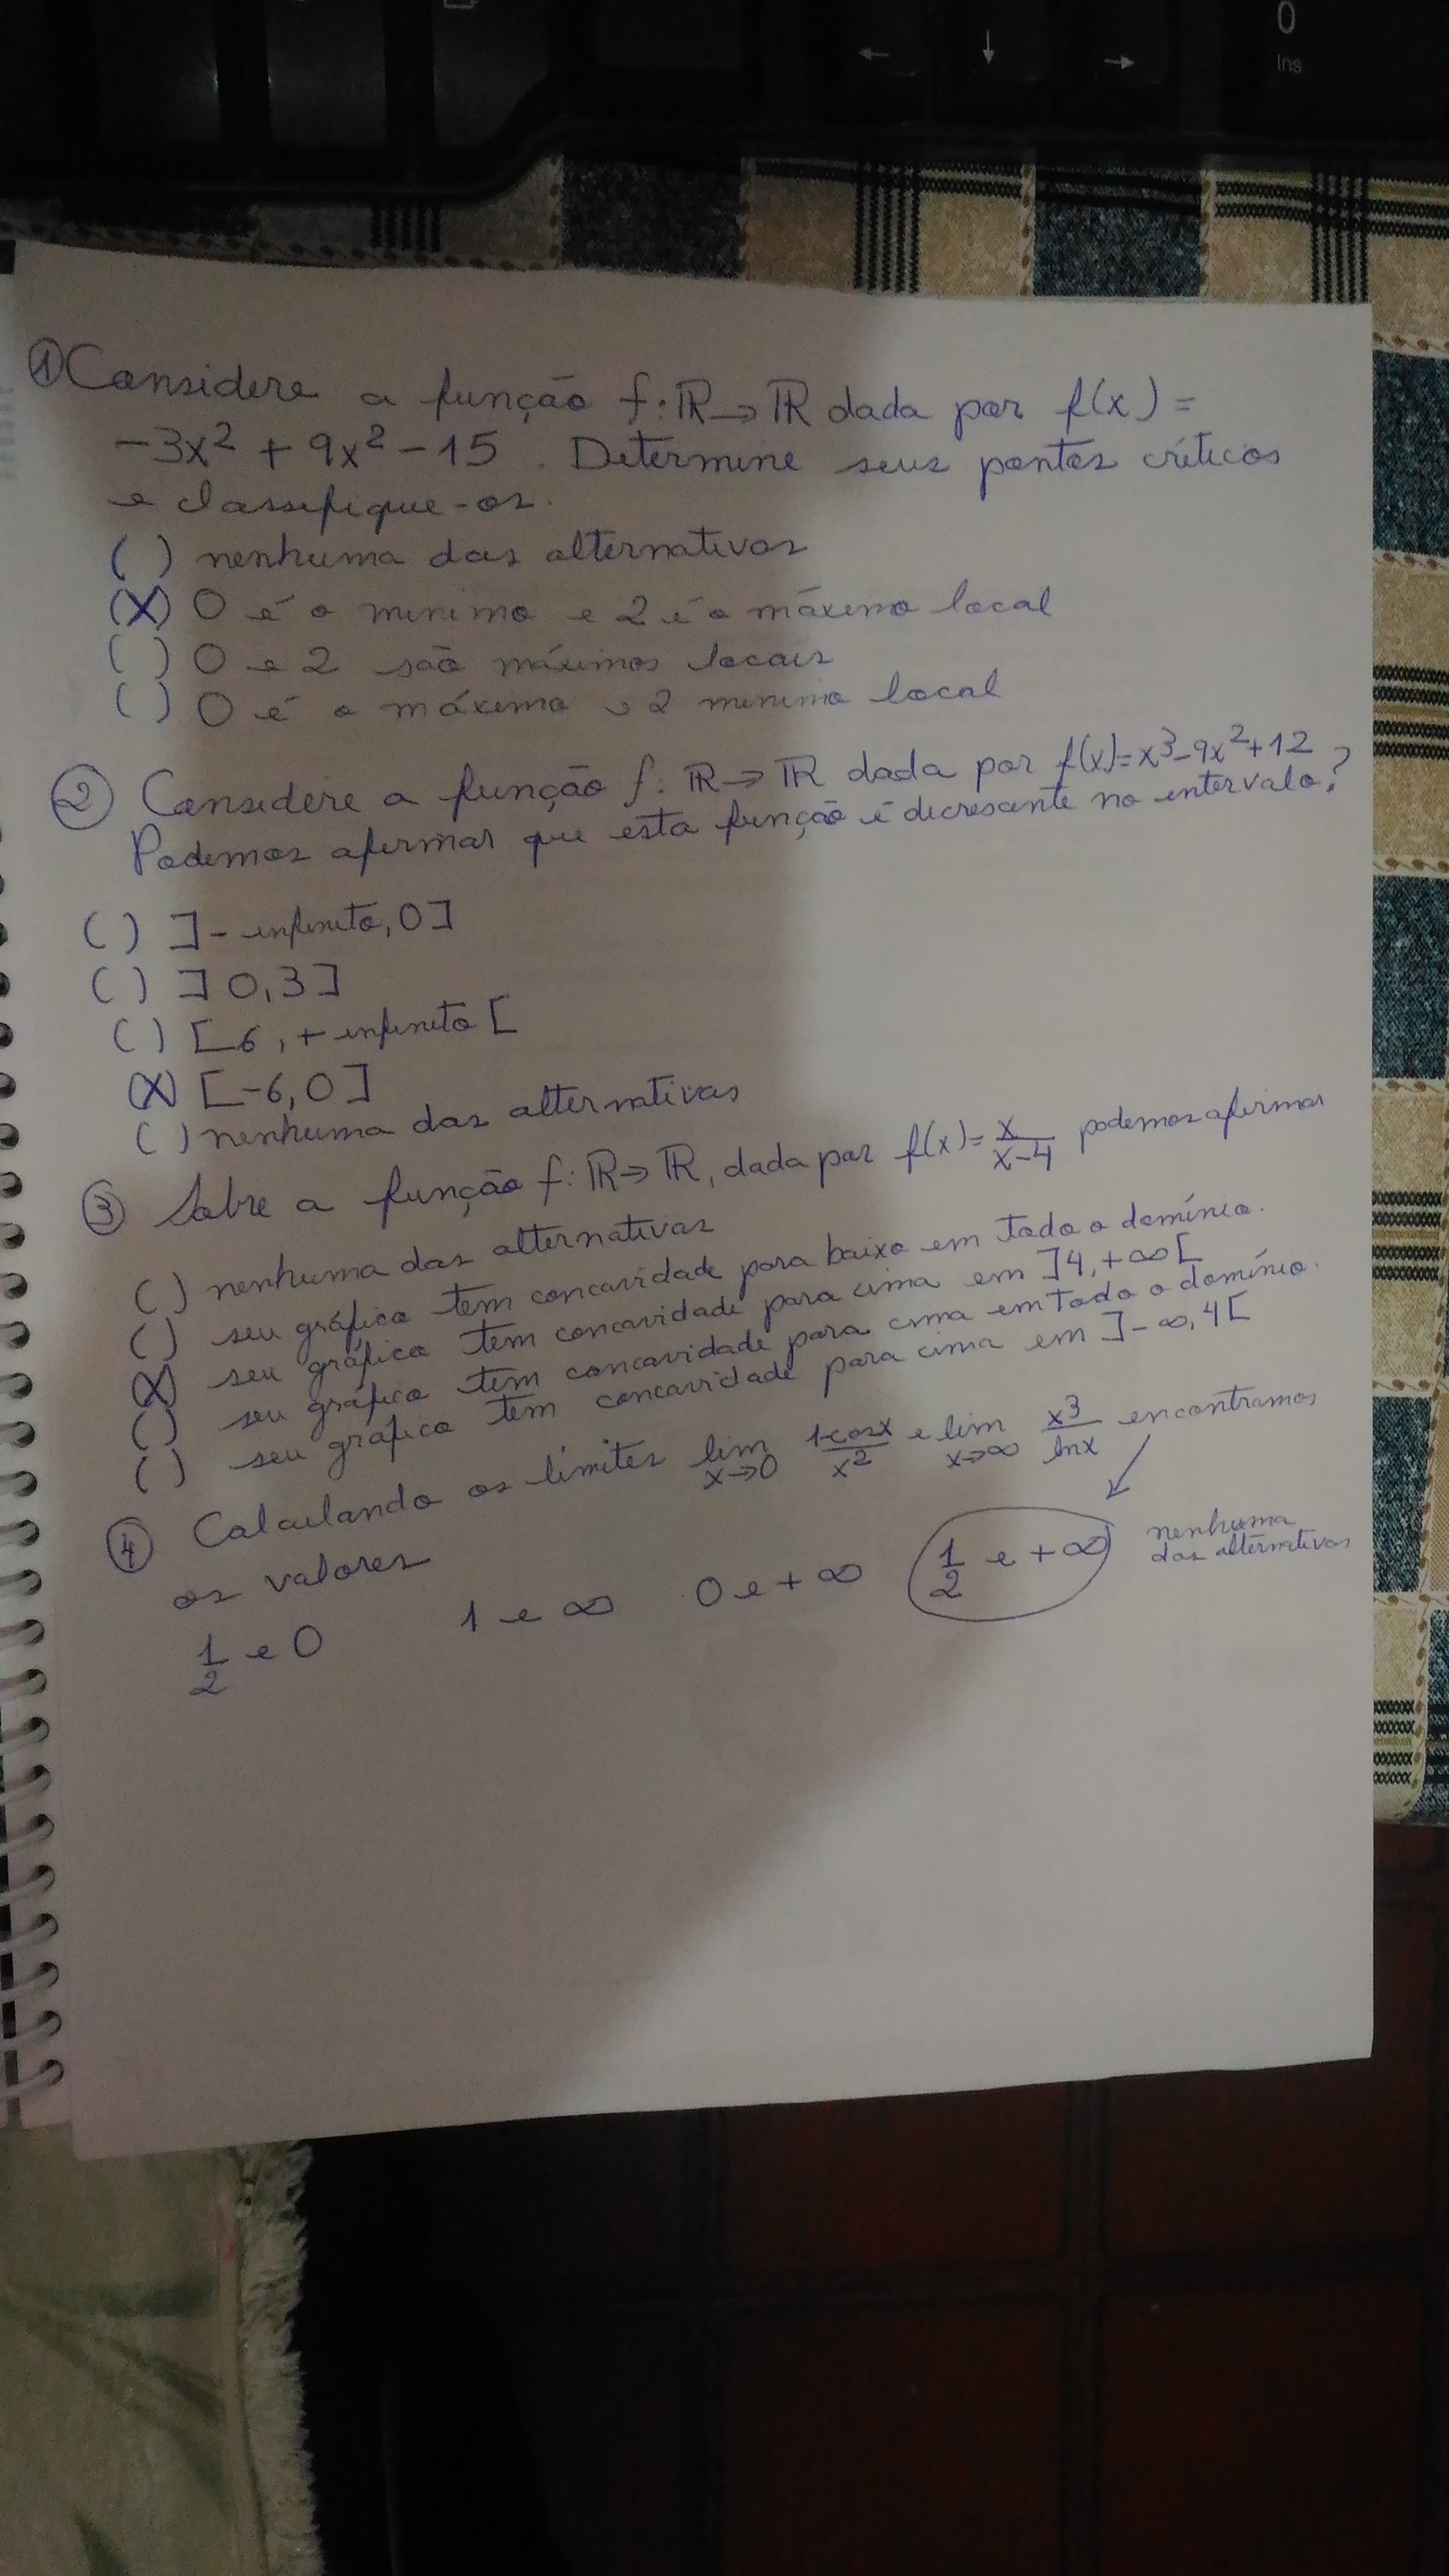 0
Ins
← ↓ →
① Considere a função f: ℝ → ℝ dada por f(x) =
-3x² + 9x² - 15. Determine seus pontos críticos
e classifique-os.
( ) nenhuma das alternativas
(X) 0 é o minimo e 2 é o máximo local
( ) 0 e 2 são máximos locais
( ) 0 é o máximo e 2 minimo local
② Considere a função f: ℝ → ℝ dada por f(x)=x³-9x²+12
Podemos afirmar que esta função é decrescente no intervalo?
( ) ]- infinito, 0]
( ) ] 0, 3 ]
( ) [ 6, + infinito [
(X) [-6, 0]
( ) nenhuma das alternativas
③ Sobre a função f: ℝ → ℝ, dada por f(x)= x/(x-4) podemos afirmar
( ) nenhuma das alternativas
( ) seu gráfico tem concavidade para baixo em todo o domínio.
(X) seu gráfico tem concavidade para cima em ]4, +∞[
( ) seu gráfico tem concavidade para cima em todo o domínio.
( ) seu gráfico tem concavidade para cima em ]-∞, 4[
④ Calculando os limites lim x→0 (1-cosx)/x² e lim x→∞ x³/lnx encontramos
os valores
1/2 e 0 1 e ∞ 0 e +∞ 1/2 e +∞ nenhuma das alternativas